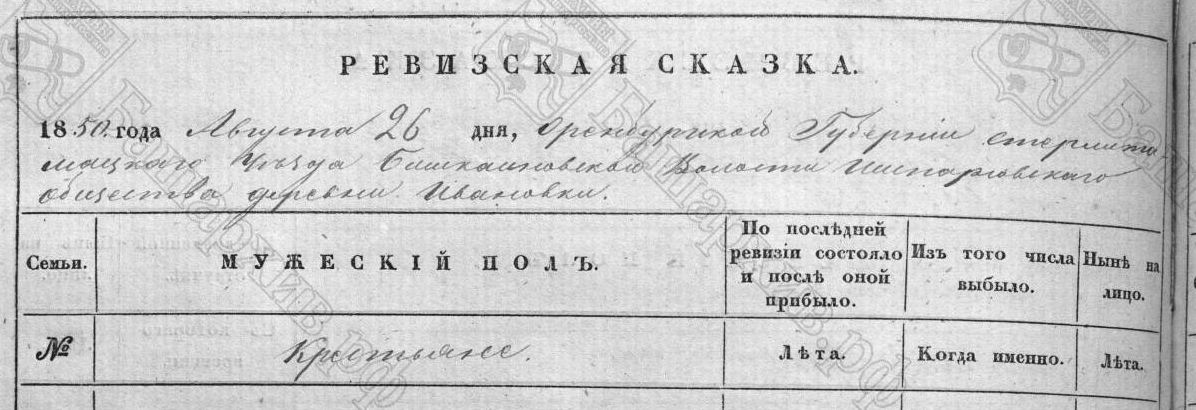 РЕВИЗСКАЯ СКАЗКА.
1850. года Августа 26 дня, Оренбургской Губернии стерлита-
мацкаго Уѣзда Волости
общества деревни Ивановки.
Семьи.
МУЖЕСКІЙ ПОЛЪ.
По послѣдней
ревизіи состояло
и послѣ оной
прибыло.
Изъ того числа
выбыло.
Нынѣ на
лицо.
№
Крестьяне.
Лѣта.
Когда именно.
Лѣта.
Башархив.рф